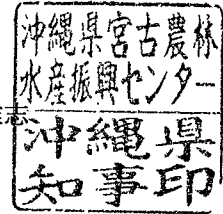 沖縄県宮古農林
水産振興センター
志
沖縄県
知事印